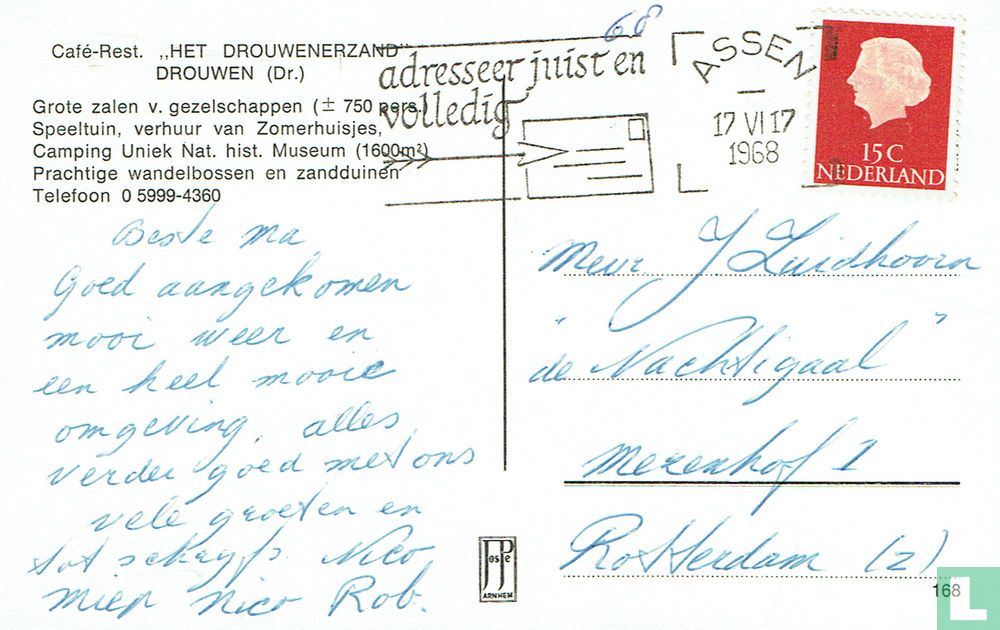 68
Café-Rest. ,,HET DROUWENERZAND"
DROUWEN (Dr.)
Grote zalen v. gezelschappen (± 750 pers.)
Speeltuin, verhuur van Zomerhuisjes,
Camping Uniek Nat. hist. Museum (1600m²)
Prachtige wandelbossen en zandduinen
Telefoon 0 5999-4360
adresseer juist en
volledig
ASSEN
17 VI 17
1968
15 C
NEDERLAND
Beste Ma
Goed aangekomen
mooi weer en
een heel mooie
omgeving, alles
verder goed met ons
vele groeten en
tot schrijfs Nico
Miep Nico Rob.
Mevr J Luidhoorn
"de Nachtigaal"
Merenhof 1
Rotterdam (Z)
JosPe
ARNHEM
168
L